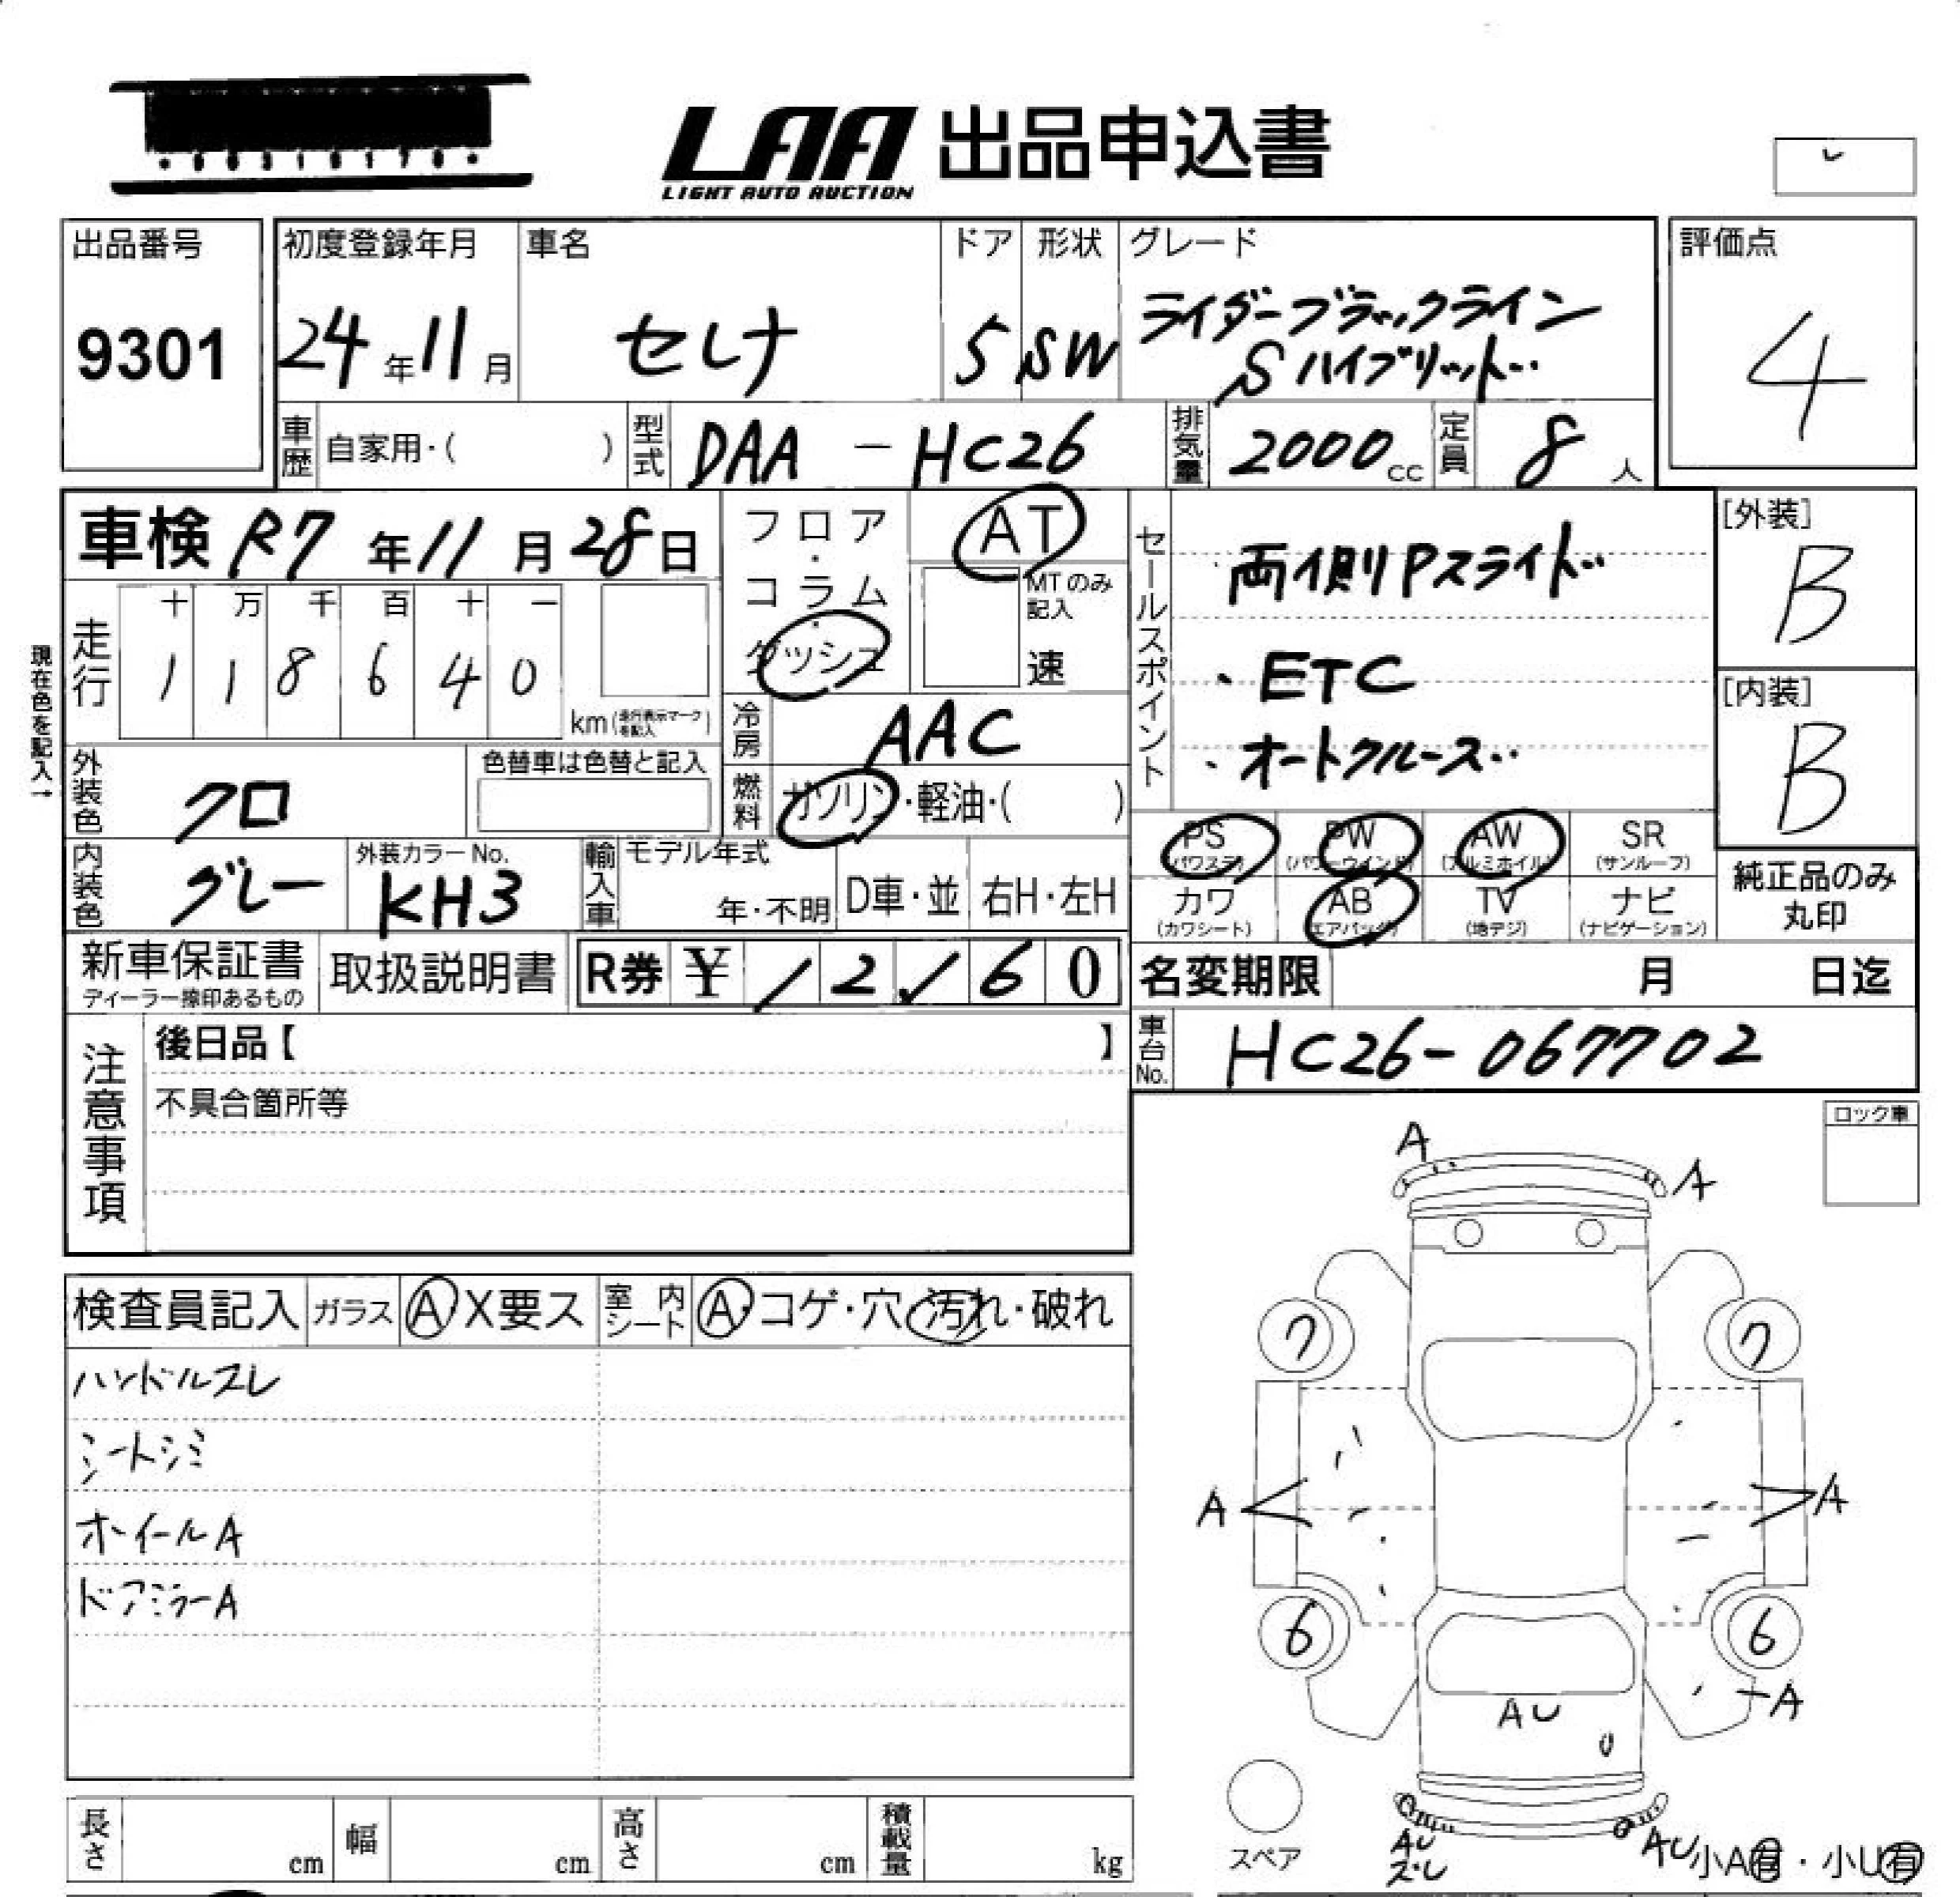 LAA 出品申込書
LIGHT AUTO AUCTION
出品番号
9301
初度登録年月
24年11月
車名
セレナ
ドア
5
形状
SW
グレード
ライダーブラックライン
Sハイブリット
評価点
4
車歴 自家用・( )
型式 DAA - HC26
排気量 2000cc
定員 8人
車検 R7年11月28日
フロア・コラム・ダッシュ
AT
MTのみ記入
速
現在色を記入→
走行
十 万 千 百 十 一
1 1 8 6 4 0
km(走行表示マークを記入)
冷房 AAC
燃料 ガソリン・軽油・( )
外装色 クロ
色替車は色替と記入
内装色 グレー
外装カラーNo.
KH3
輸入車 モデル年式
年・不明
D車・並
右H・左H
セールスポイント
・両側Pスライド
・ETC
・オートクルーズ
[外装]
B
[内装]
B
PS (パワステ)
PW (パワーウインド)
AW (アルミホイル)
SR (サンルーフ)
カワ (カワシート)
AB (エアバッグ)
TV (地デジ)
ナビ (ナビゲーション)
純正品のみ
丸印
新車保証書
ディーラー捺印あるもの
取扱説明書
R券 ¥ / 2 / 6 0
名変期限 月 日迄
車台No. HC26-067702
注意事項
後日品【 】
不具合箇所等
ロック車
検査員記入 ガラス A X要ス 室内シート A・コゲ・穴・汚れ・破れ
ハンドルスレ
シートシミ
ホイールA
ドアミラーA
A
A
7
7
A
A
6
6
A
AU
U
スペア
AU
ズレ
AU
小A有・小U有
長さ cm
幅 cm
高さ cm
積載量 kg